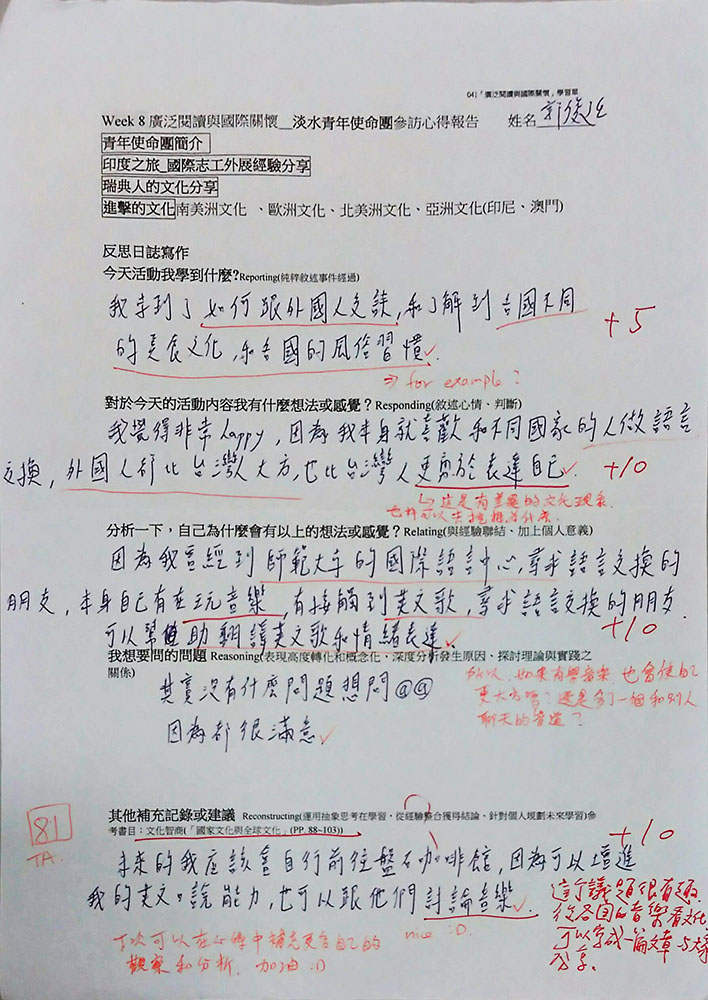 041「廣泛閱讀與國際關懷」學習單
Week 8 廣泛閱讀與國際關懷__淡水青年使命團參訪心得報告 姓名
青年使命團簡介
印度之旅_國際志工外展經驗分享
瑞典人的文化分享
進擊的文化南美洲文化 、歐洲文化、北美洲文化、亞洲文化(印尼、澳門)
反思日誌寫作
今天活動我學到什麼?Reporting(純粹敘述事件經過)
我學到了如何跟外國人交談,和了解到各國不同
+5
的美食文化,和各國的風俗習慣.
⇒ for example?
對於今天的活動內容我有什麼想法或感覺？Responding(敘述心情、判斷)
我覺得非常happy，因為我本身就喜歡和不同國家的人做語言
交換，外國人都比台灣人大方,也比台灣人更勇於表達自己.
+10
↳這是有差異的文化現象
也許可以去推想為什麼.
分析一下，自己為什麼會有以上的想法或感覺？Relating(與經驗聯結、加上個人意義)
因為我曾經到師範大學的國際語言中心,尋求語言交換的
朋友，本身自己有在玩音樂,有接觸到英文歌,尋求語言交換的朋友
可以幫助翻譯英文歌和情緒表達.
+10
我想要問的問題 Reasoning(表現高度轉化和概念化，深度分析發生原因、探討理論與實踐之
關係)
其實沒有什麼問題想問@@
因為都很滿意
所以,如果有學音樂 也會使自己
更大方嗎？還是多了一個和別人
聊天的管道？
81
TA.
其他補充記錄或建議 Reconstructing(運用抽象思考在學習，從經驗整合獲得結論、針對個人規劃未來學習)參
考書目：文化智商(「國家文化與全球文化」(PP. 88~103))
+10
未來的我應該會自行前往盤石咖啡館，因為可以增進
我的英文口說能力,也可以跟他們討論音樂.
nice :D.
下次可以在心得中補充更多自己的
觀察和分析，加油:D
這個議題很有趣.
從各國的音樂看文化
可以寫成一篇文章與大家
分享.